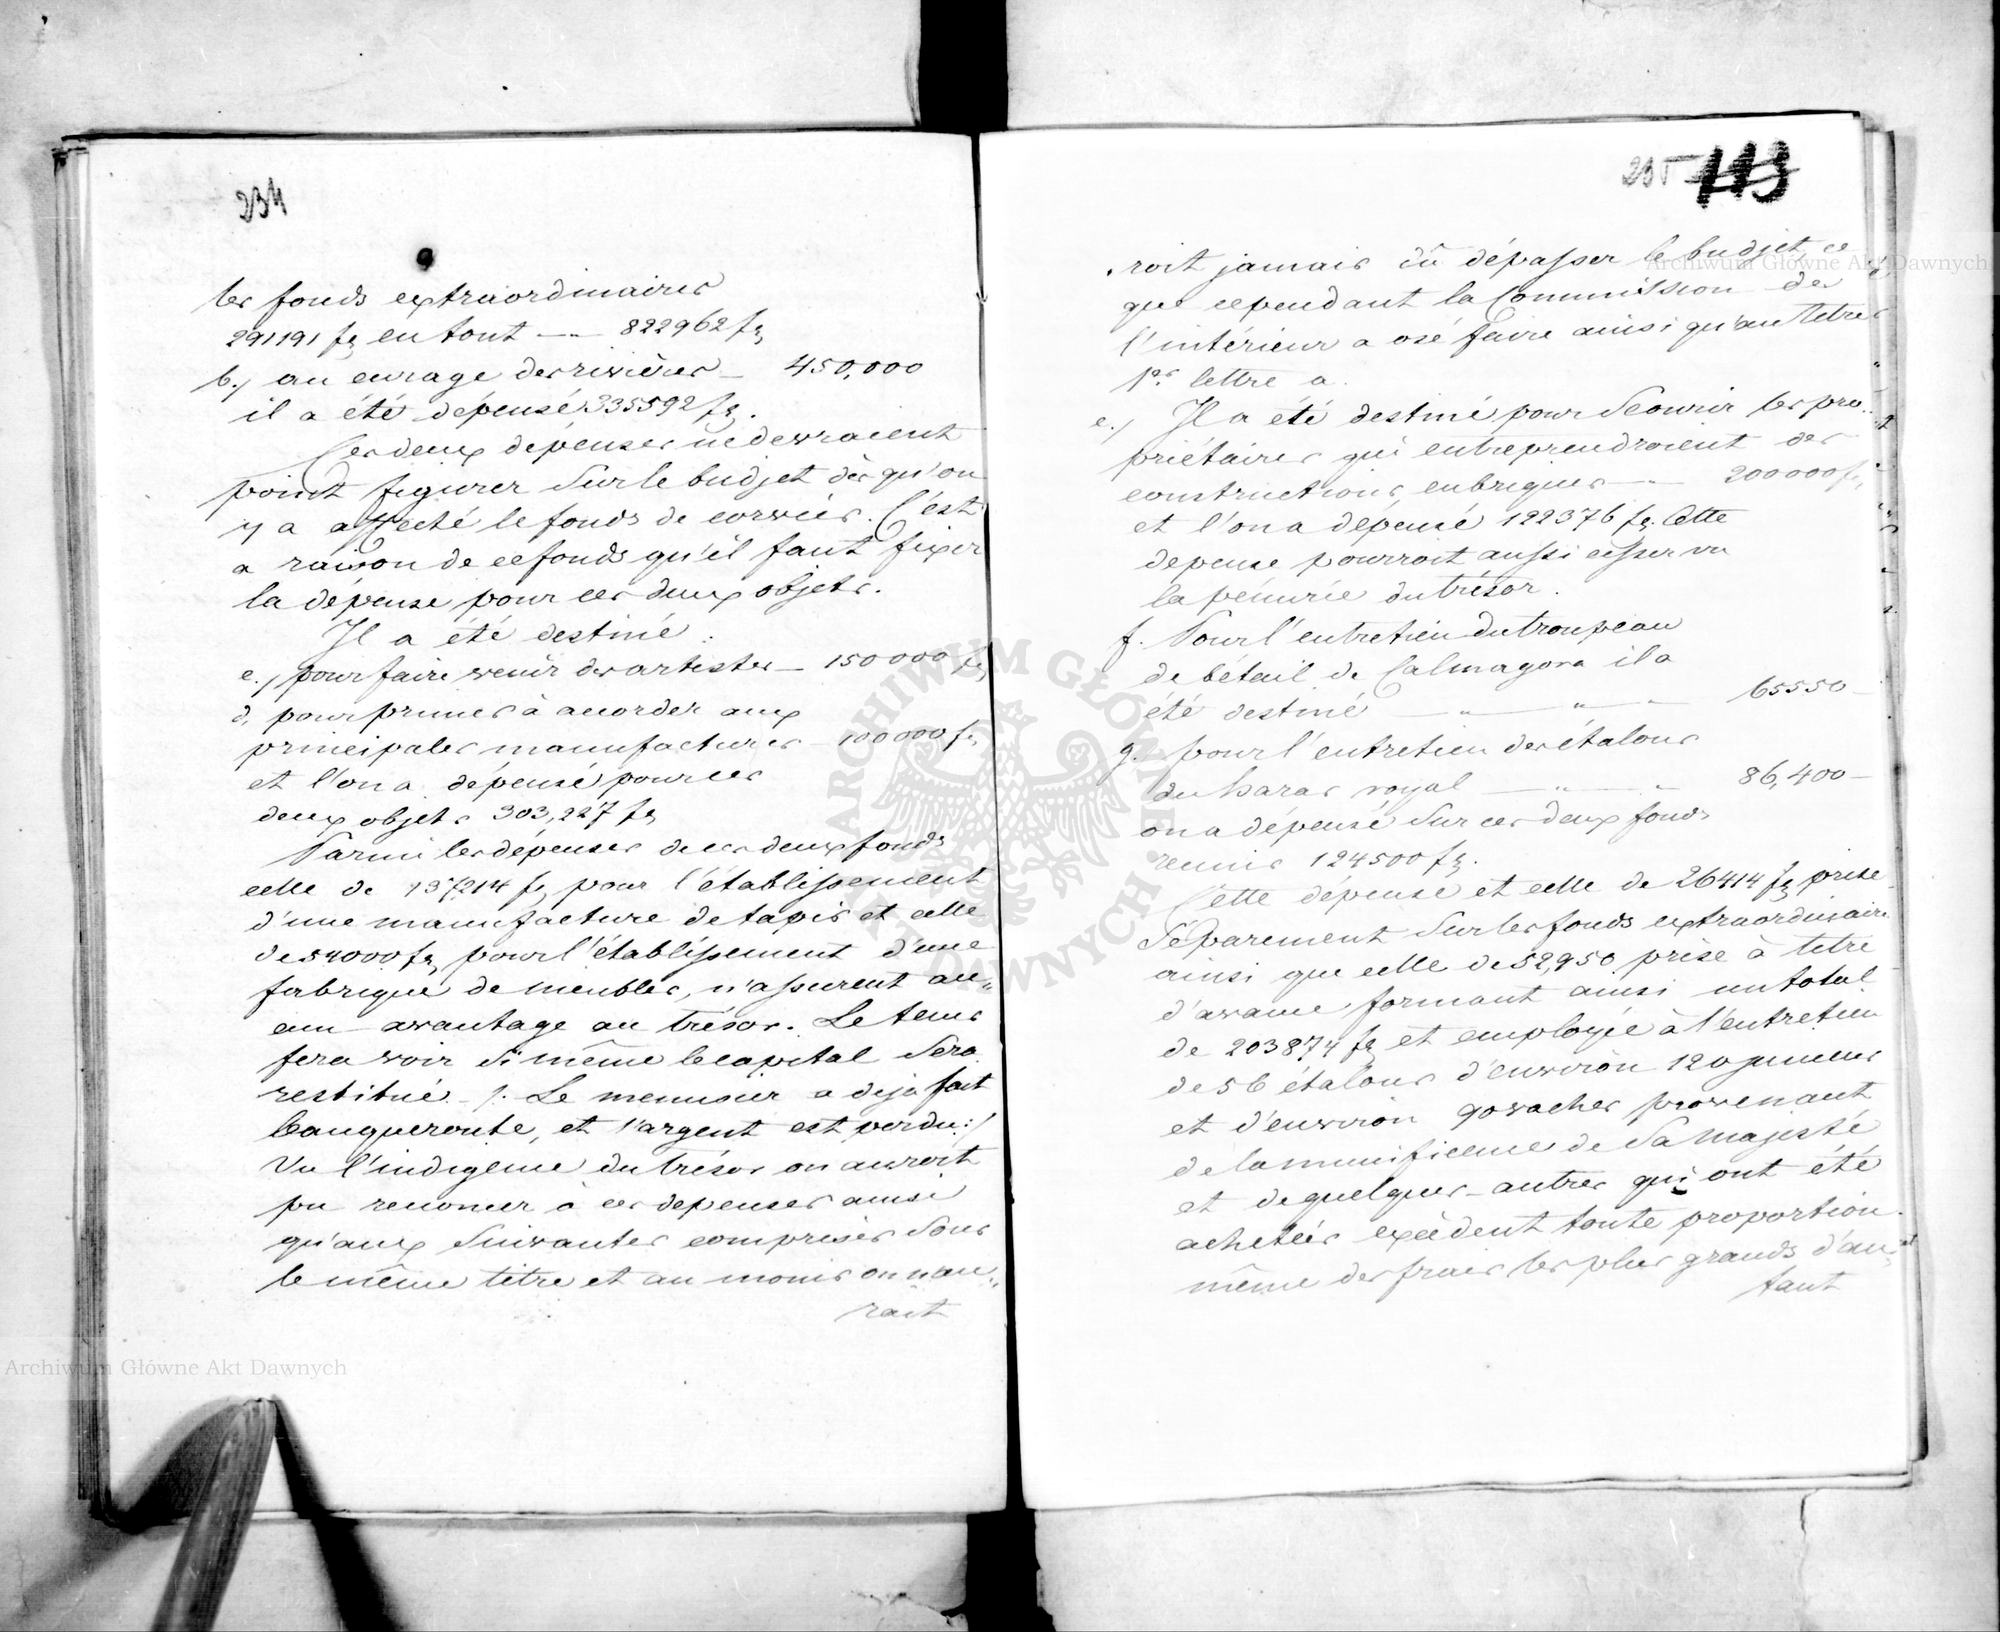 234
les fonds extraordinaires
291191 fl. en tout —— 822962 fl.
b., au curage des rivières — 450,000
il a été dépensé 335592 fl.
Ces deux dépenses ne devraient
point figurer sur le budjet dès qu'on
y a affecté le fonds de corvées. C'est
a raison de ce fonds qu'il faut fixer
la dépense pour ces deux objets.
Il a été destiné:
c., pour faire venir des artistes — 150000 fl.
d, pour primes à accorder aux
principales manufactures — 100000 fl.
et l'on a dépensé pour ces
deux objets 303,227 fl.
Parmi les dépenses de ces deux fonds
celle de 137214 fl. pour l'établissement
d'une manufacture de tapis et celle
de 54000 fl. pour l'établissement d'une
fabrique de meubles, n'assurent au„
cun avantage au trésor. Le tems
fera voir si même le capital sera
restitué. /: Le menusier a déja fait
banqueroute, et l'argent est perdu :/
Vu l'indigence du trésor on auroit
pu renoncer à ces depenses ainsi
qu'aux suivantes comprises sous
le même titre et au moins on n'au„
rait
235 113
roit jamais dû dépasser le budjet, ce
que cependant la Commission de
l'intérieur a osé faire ainsi qu'au titre
1er lettre a.
e., Il a été destiné pour secourir les pro„
priétaires qui entreprendroient des
constructions en briques —— 200000 fl.
et l'on a dépensé 122376 fl. Cette
depense pourroit aussi cesser vu
la pénurie du trésor.
f. Pour l'entretien du troupeau
de bétail de Calmagora il a
été destiné — „ — „ — „ 65550 —
g. pour l'entretien des étalons
du haras royal — „ — „ 86,400 —
on a dépensé sur ces deux fonds
reunis 124500 fl.
Cette dépense et celle de 26414 fl. prise
séparement sur les fonds extraordinaires
ainsi que celle de 52,950 prise à titre
d'avance formant ainsi un total
de 203874 fl. et employée à l'entretien
de 56 étalons d'environ 120 jumens
et d'environ 90 vaches provenant
de la munificence de Sa Majesté
et de quelques autres qui ont été
achetées excèdent toute proportion
même des frais les plus grands d'au„
tant
ARCHIWUM GŁÓWNE AKT DAWNYCH
Archiwum Główne Akt Dawnych
Archiwum Główne Akt Dawnych